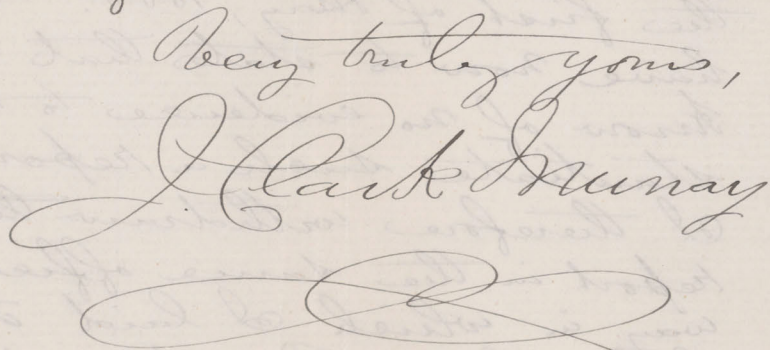 Very truly yours,
J. Clark Murray